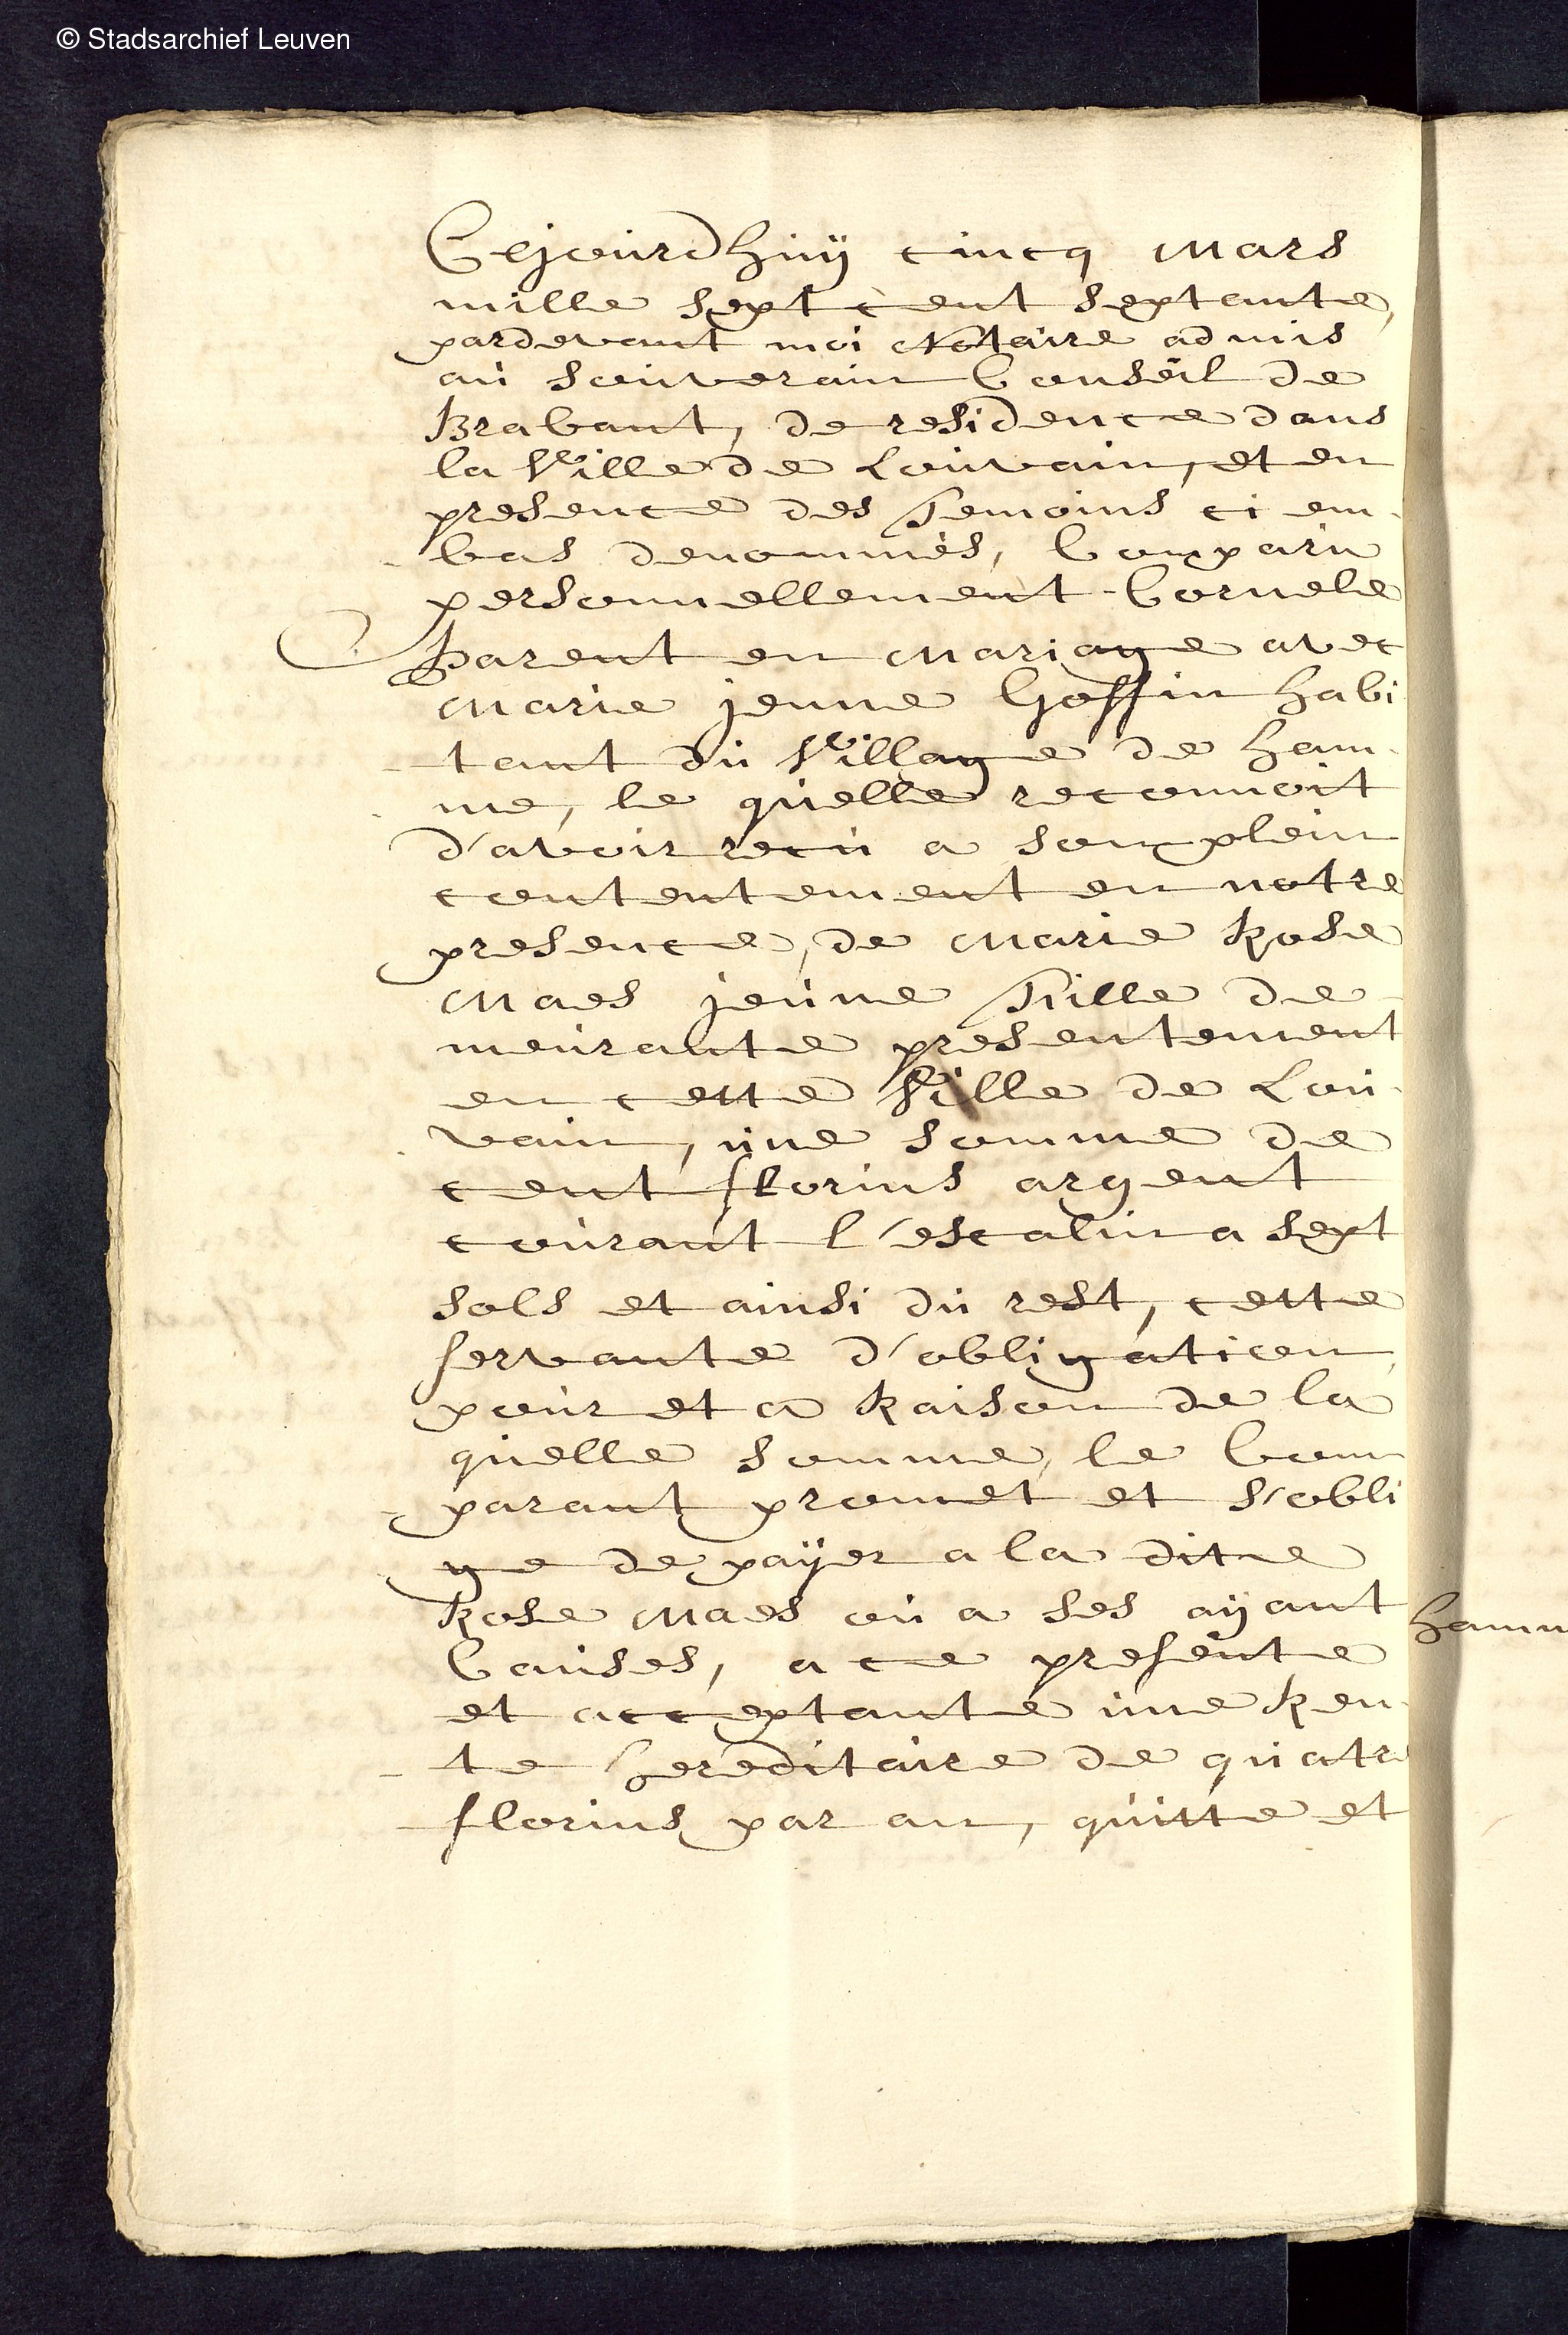 © Stadsarchief Leuven
Cejourdhuÿ cincq Mars
mille sept cent septante,
pardevant moi Notaire admis
au souverain Conseil de
Brabant, de residence dans
la Ville de Louvain, et en
presence des Temoins ci em-
-bas denommés, Comparu
personnellement Cornele
Parent en Mariage avec
Marie jenne Goffin habi
-tant du Village de ham-
-me, le quelle reconnoit
d'avoir recu a son plein
contentement en notre
presence, de Marie Rose
Maes jeune Fille de
meurante presentement
en cette Ville de Lou-
-vain, une somme de
cent florins argent
courant l'escalin a sept
sols et ainsi du rest, cette
servante d'obligation,
pour et a Raison de la
quelle somme, le Com
-parant promet et s'obli
-ge de paÿer a la dite
Rose Maes ou a ses aÿant
Causes, a ce presente
et acceptante une Ren-
-te hereditaire de quatre
florins par an, quitte et